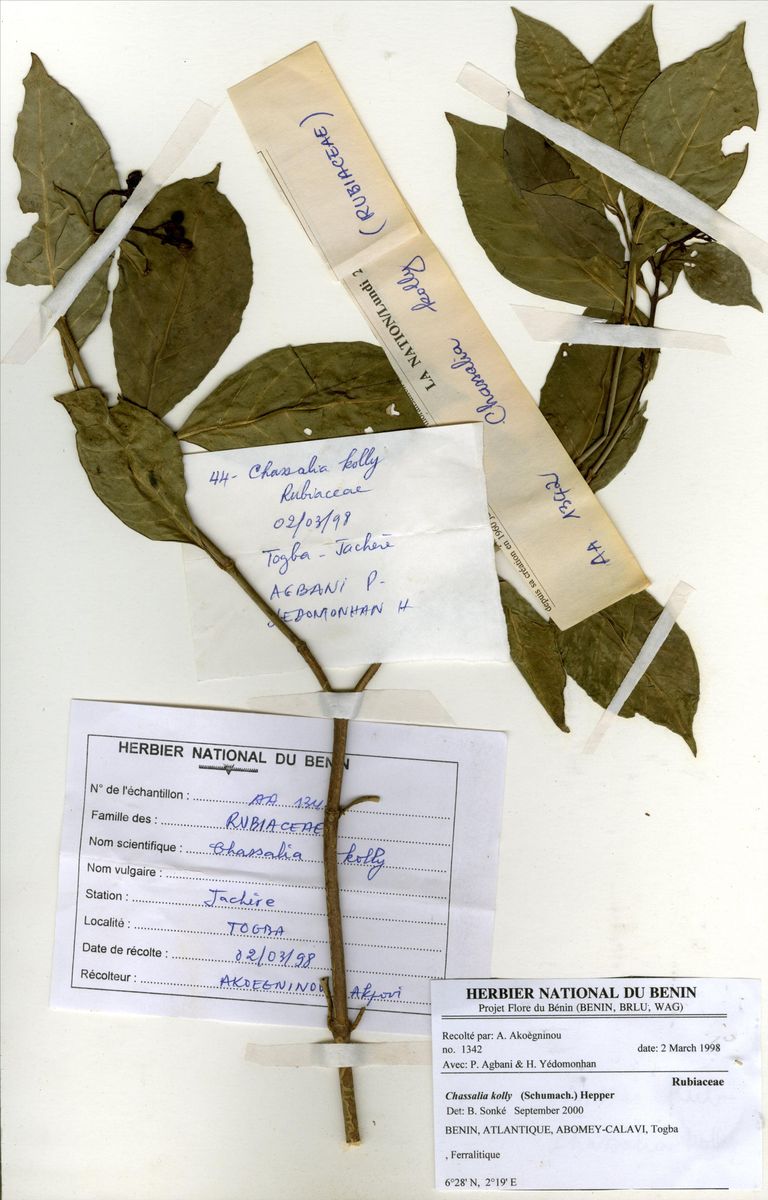 (RUBIACEAE)
LA NATION/Lundi 2
Chassalia kolly
AA 1342
depuis sa création en 1960
44- Chassalia kolly
Rubiaceae
02/03/98
Togba - Jachère
AGBANI P-
YEDOMONHAN H
HERBIER NATIONAL DU BENIN
N° de l'échantillon : AA 134
Famille des : RUBIACEAE
Nom scientifique : Chassalia kolly
Nom vulgaire :
Station : Jachère
Localité : TOGBA
Date de récolte : 02/03/98
Récolteur : AKOEGNINOU Akjovi
HERBIER NATIONAL DU BENIN
Projet Flore du Bénin (BENIN, BRLU, WAG)
Recolté par: A. Akoègninou
no. 1342 date: 2 March 1998
Avec: P. Agbani & H. Yédomonhan
Rubiaceae
Chassalia kolly (Schumach.) Hepper
Det: B. Sonké September 2000
BENIN, ATLANTIQUE, ABOMEY-CALAVI, Togba
, Ferralitique
6°28' N, 2°19' E